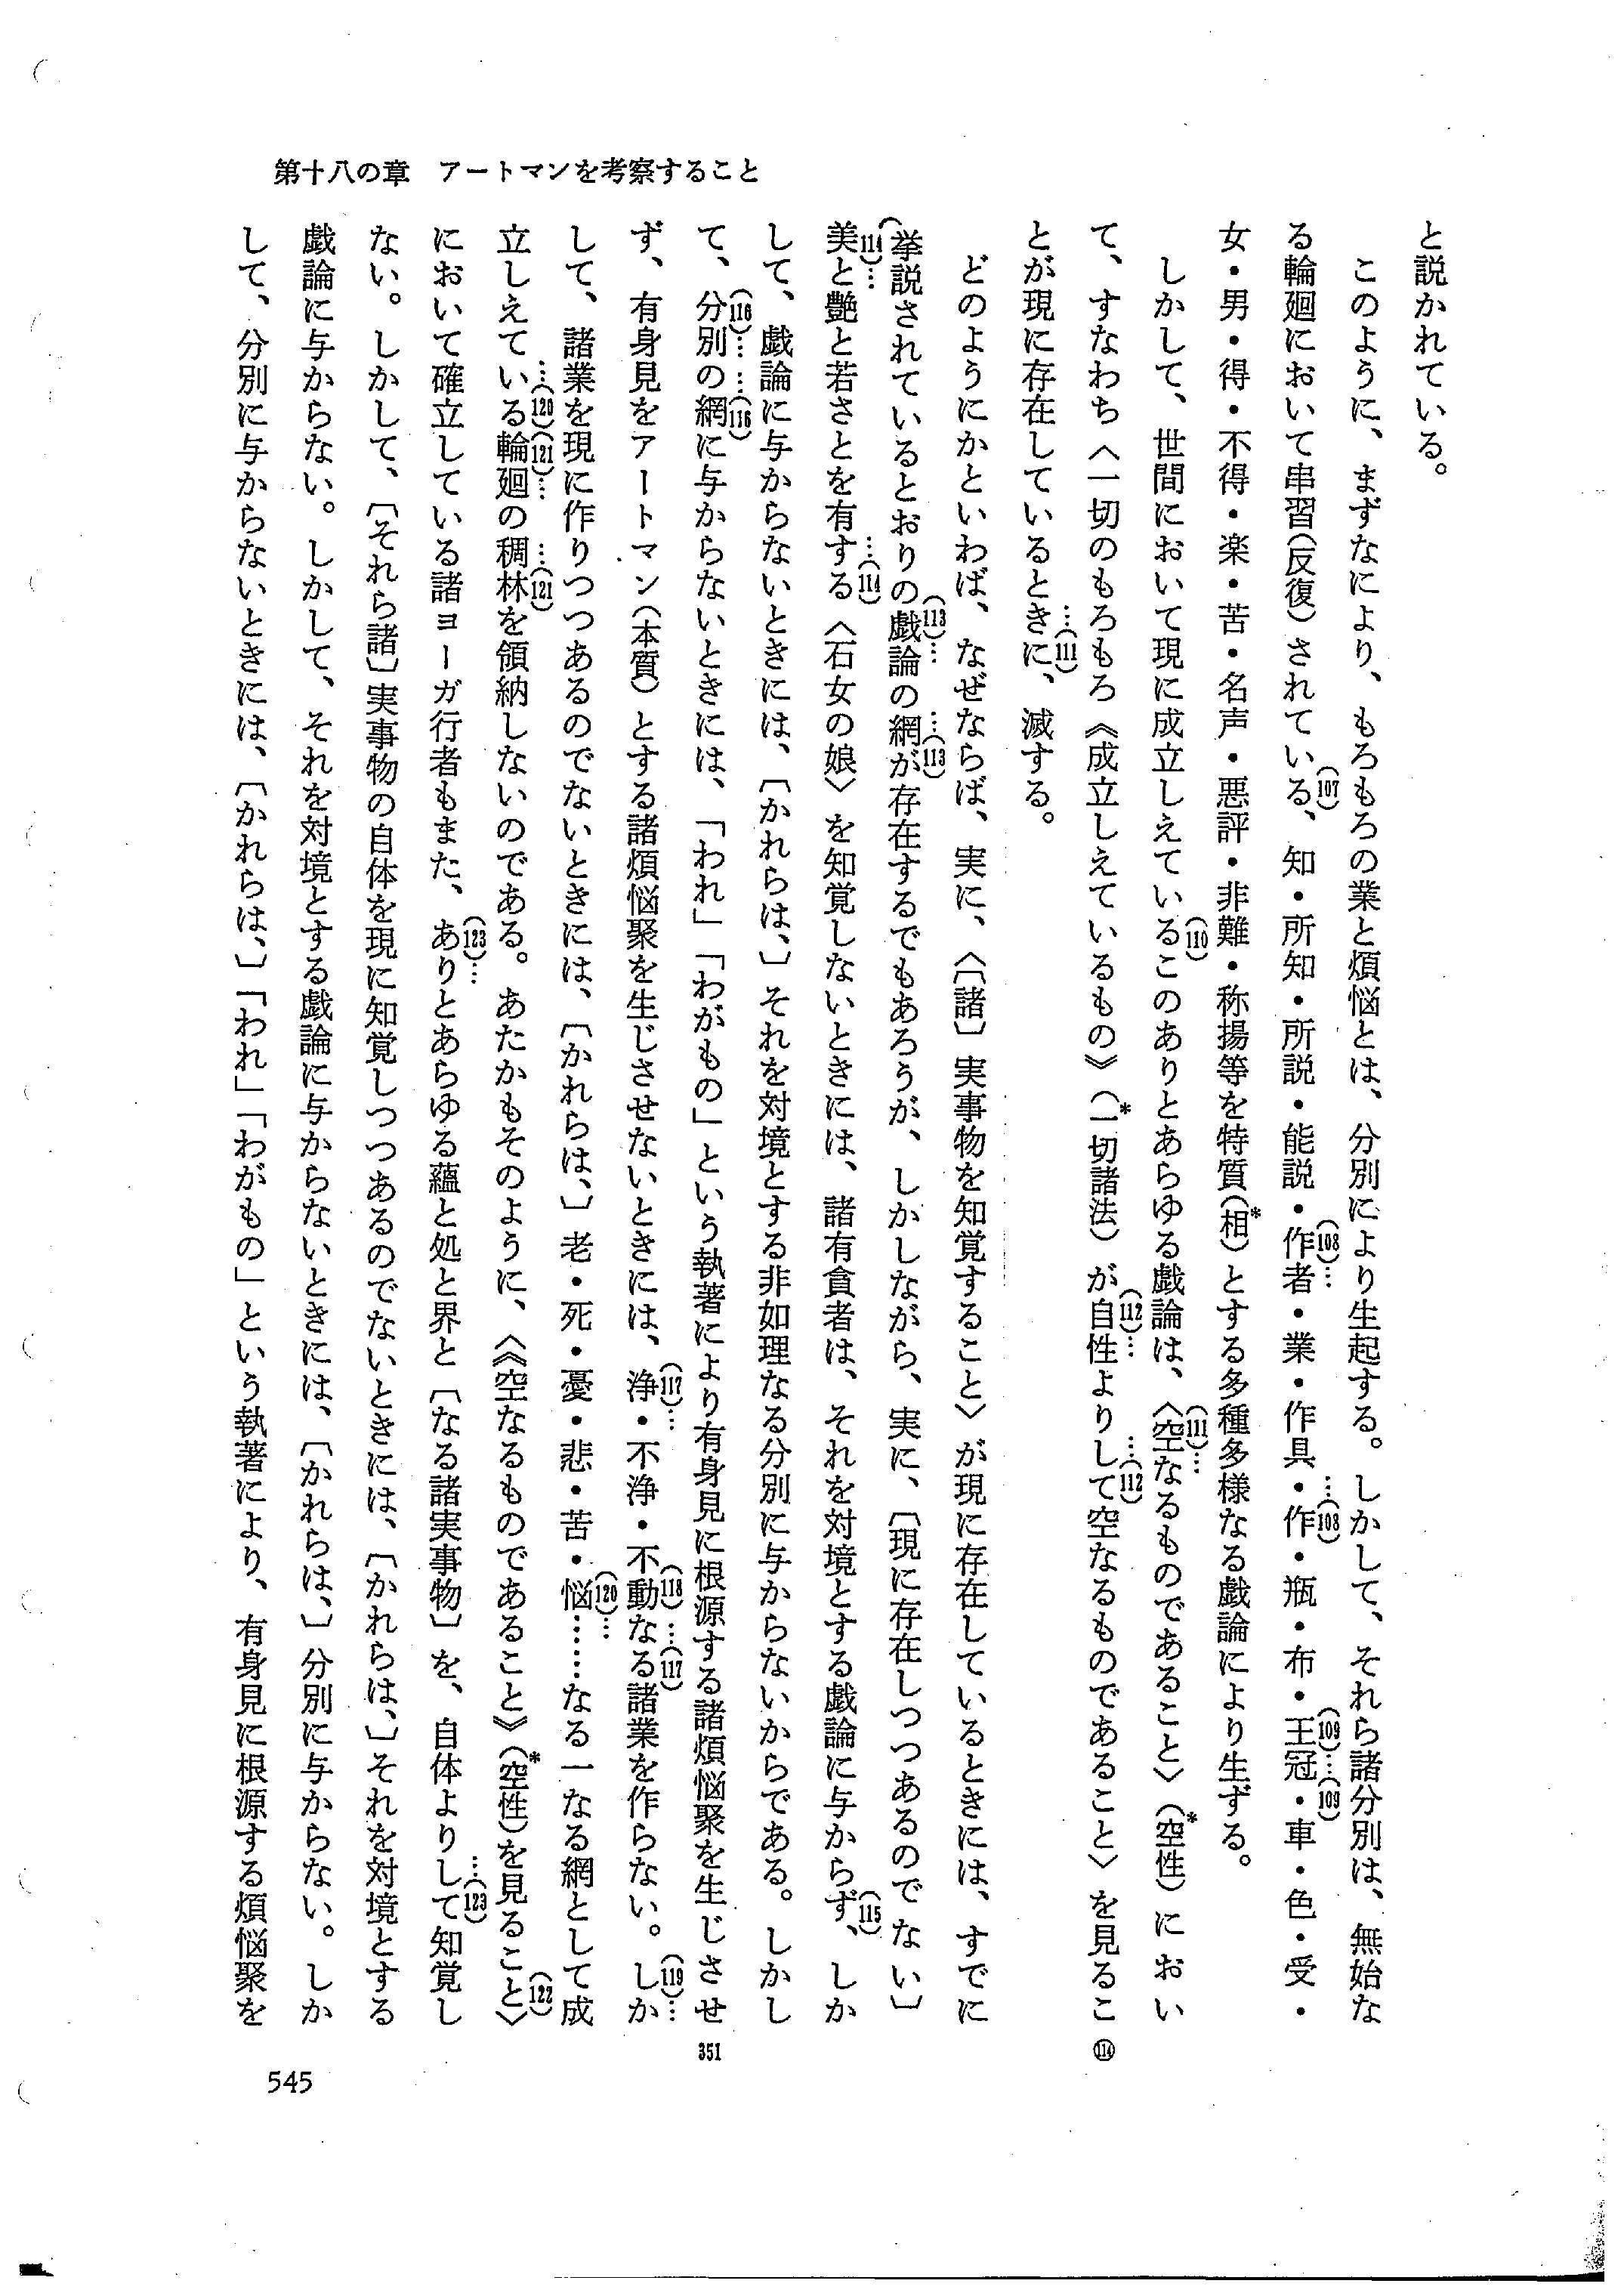 第十八の章　アートマンを考察すること
と説かれている。
　このように、まずなにより、もろもろの業と煩悩とは、分別により生起する。しかして、それら諸分別は、無始な
る輪廻において串習（反復）されている(107)、知・所知・所説・能説・(108)…作者・業・作具・作…(108)・瓶・布・(109)…王冠…(109)・車・色・受・
女・男・得・不得・楽・苦・名声・悪評・非難・称揚等を特質（相*）とする多種多様なる戯論により生ずる。
　しかして、世間において現に成立しえている(110)このありとあらゆる戯論は、(111)…〈空なるものであること〉（空性*）におい
て、すなわち〈一切のもろもろ《成立しえているもの》（一切諸法*）が(112)…自性よりして…(112)空なるものであること〉を見るこ
とが現に存在しているときに…(111)、滅する。
　どのようにかといわば、なぜならば、実に、〈〔諸〕実事物を知覚すること〉が現に存在しているときには、すでに
挙説されているとおりの(113)…戯論の網…(113)が存在するでもあろうが、しかしながら、実に、〔現に存在しつつあるのでない〕
(114)…美と艶と若さとを有する…(114)〈石女の娘〉を知覚しないときには、諸有貪者は、それを対境とする戯論に与からず(115)、しか
して、戯論に与からないときには、〔かれらは、〕それを対境とする非如理なる分別に与からないからである。しかし
て、(116)…分別の網…(116)に与からないときには、「われ」「わがもの」という執著により有身見に根源する諸煩悩聚を生じさせ
ず、有身見をアートマン（本質）とする諸煩悩聚を生じさせないときには、(117)…浄・不浄・不動(118)なる…(117)諸業を作らない。(119)…しか
して、諸業を現に作りつつあるのでないときには、〔かれらは、〕老・死・憂・悲・苦・(120)…悩……なる一なる網として成
立しえている…(120)(121)…輪廻の稠林…(121)を領納しないのである。あたかもそのように、〈《空なるものであること》（空性*）を見ること〉(122)
において確立している諸ヨーガ行者もまた、(123)…ありとあらゆる蘊と処と界と〔なる諸実事物〕を、自体よりして…(123)知覚し
ない。しかして、〔それら諸〕実事物の自体を現に知覚しつつあるのでないときには、〔かれらは、〕それを対境とする
戯論に与からない。しかして、それを対境とする戯論に与からないときには、〔かれらは、〕分別に与からない。しか
して、分別に与からないときには、〔かれらは、〕「われ」「わがもの」という執著により、有身見に根源する煩悩聚を
⑭
351
545